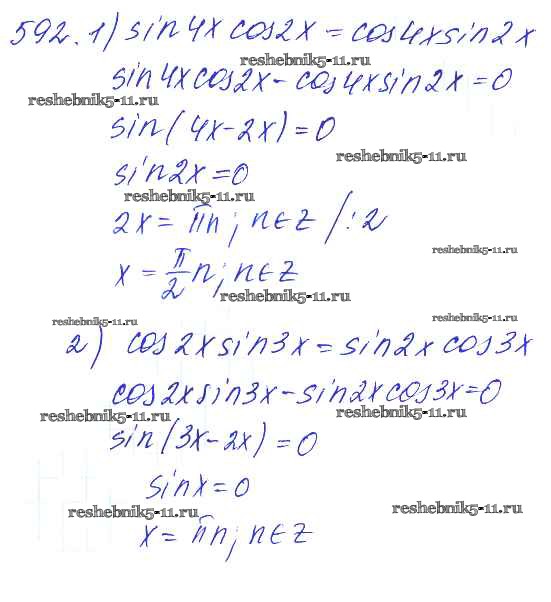 592. 1) sin4x cos2x = cos4x sin2x
reshebnik5-11.ru
sin4x cos2x - cos4x sin2x = 0
reshebnik5-11.ru
sin(4x-2x) = 0
reshebnik5-11.ru
sin2x = 0
reshebnik5-11.ru
2x = πn; n∈Z /:2
reshebnik5-11.ru
x = π/2 n; n∈Z
reshebnik5-11.ru
reshebnik5-11.ru
reshebnik5-11.ru
2) cos2x sin3x = sin2x cos3x
cos2x sin3x - sin2x cos3x = 0
reshebnik5-11.ru
reshebnik5-11.ru
sin(3x-2x) = 0
sinx = 0
reshebnik5-11.ru
reshebnik5-11.ru
x = πn; n∈Z